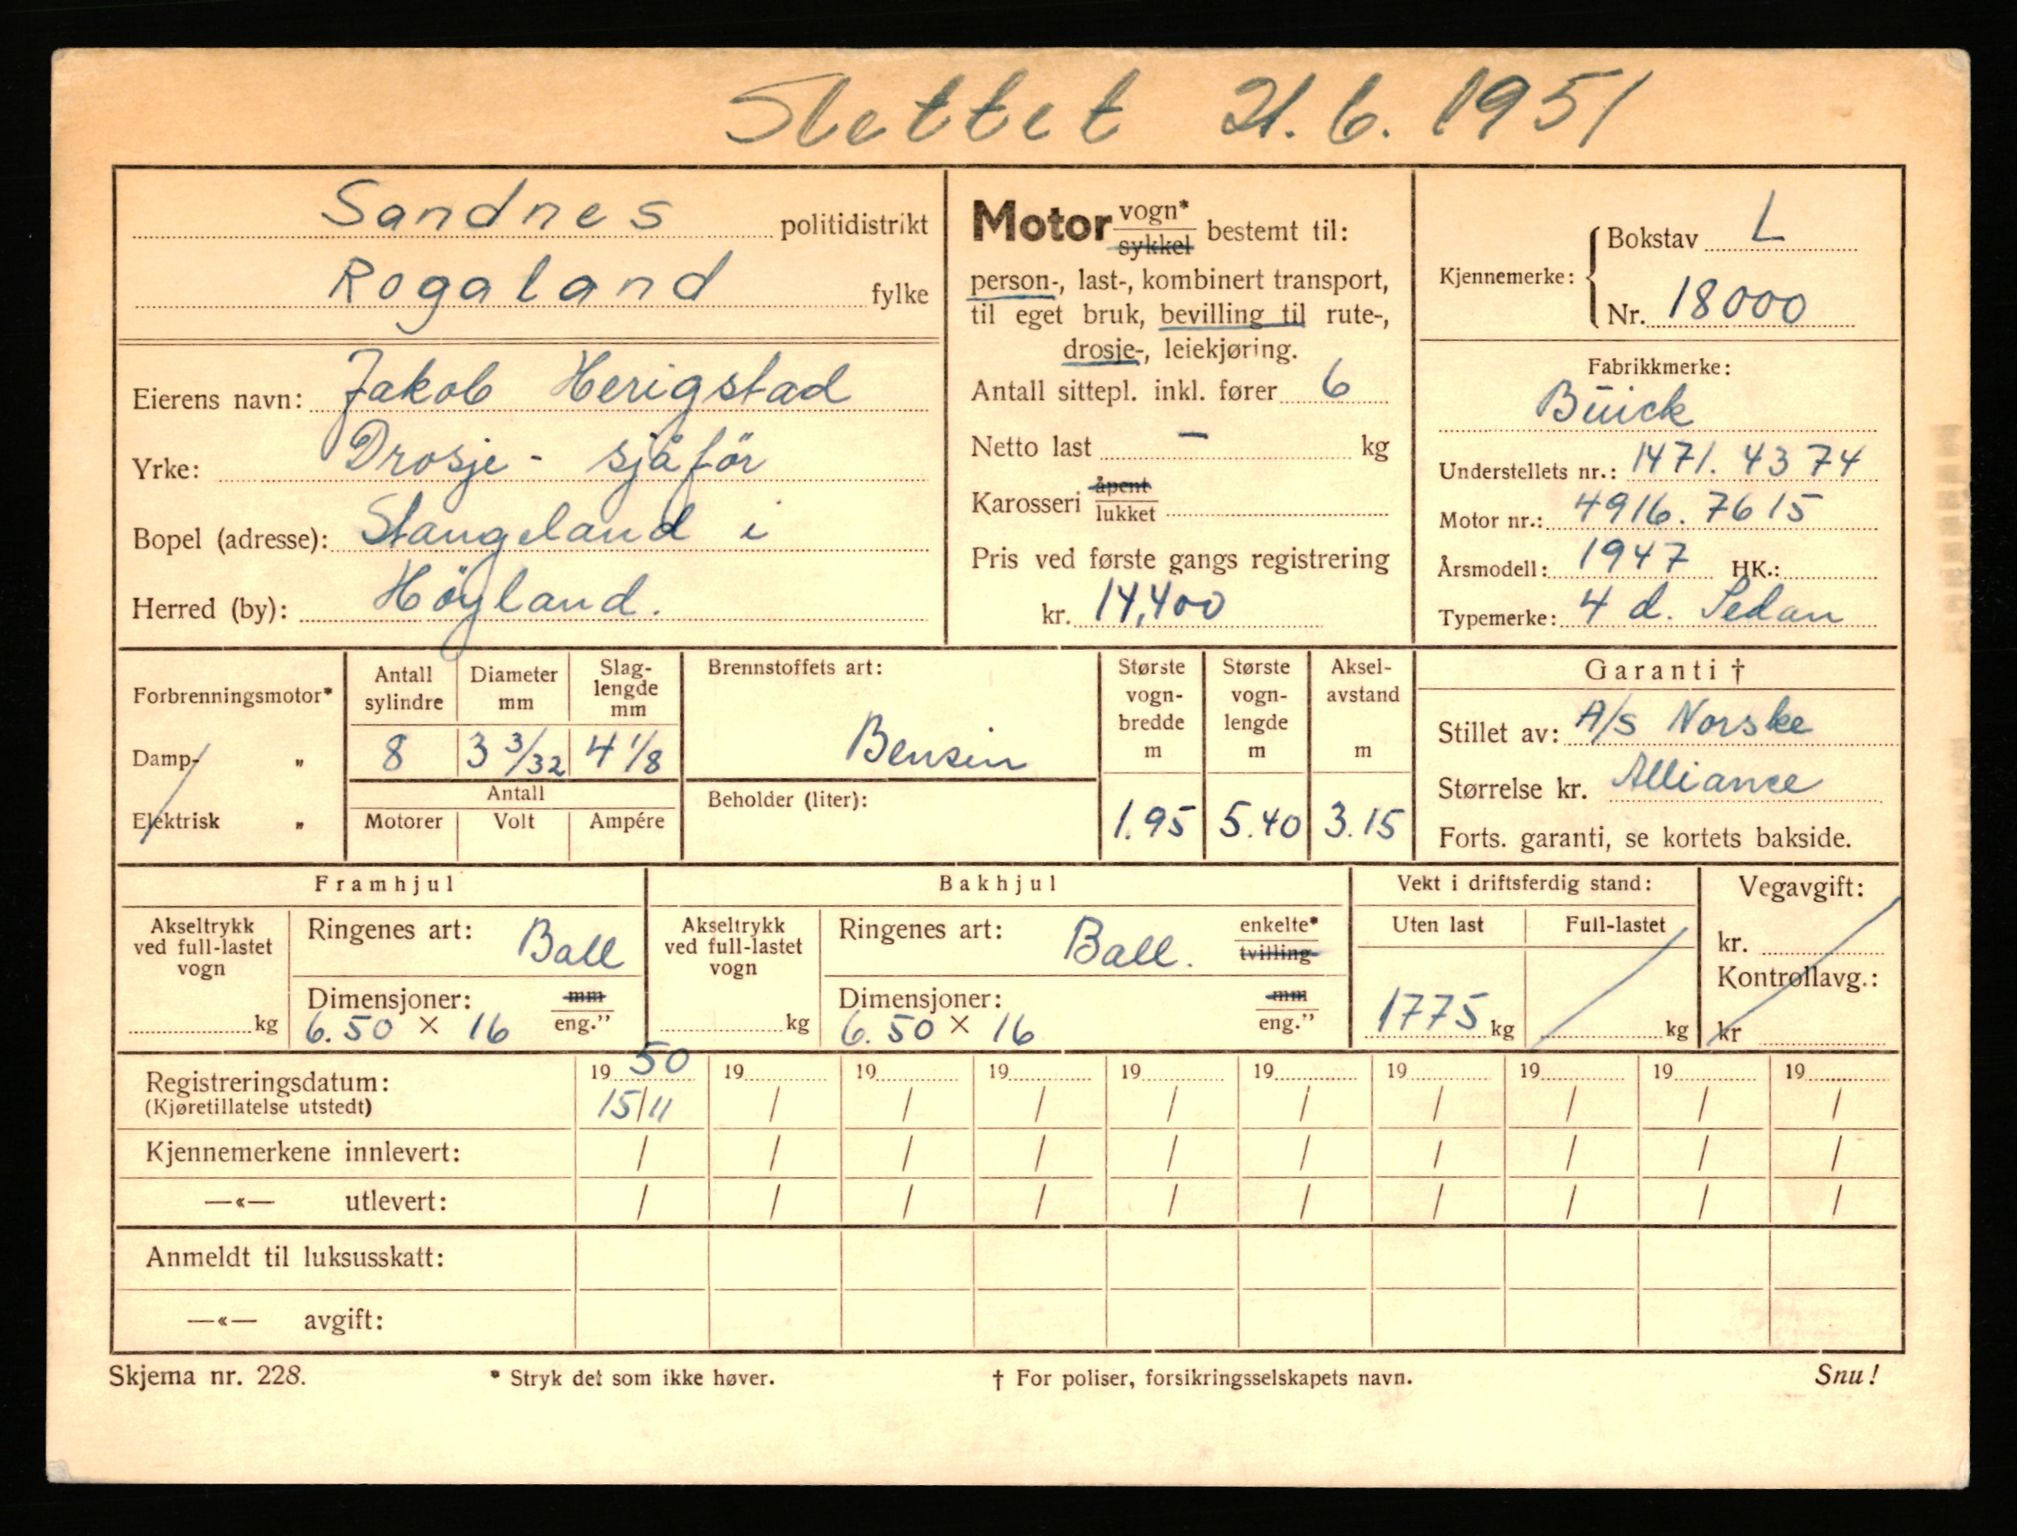 Slettet 21.6.1951
Sandnes politidistrikt
Rogaland fylke
Eierens navn: Jakob Herigstad
Yrke: Drosje - sjåför
Bopel (adresse): Stangeland i
Herred (by): Höyland.
Motor vogn* sykkel bestemt til:
person-, last-, kombinert transport,
til eget bruk, bevilling til rute-,
drosje-, leiekjøring.
Antall sittepl. inkl. fører 6
Netto last – kg
Karosseri åpent lukket
Pris ved første gangs registrering
kr. 14,400
Kjennemerke: Bokstav L
Nr. 18000
Fabrikkmerke:
Buick
Understellets nr.: 1471. 4374
Motor nr.: 4916. 7615
Årsmodell: 1947 HK.:
Typemerke: 4 d. Sedan
Forbrenningsmotor*
Damp- „
Elektrisk „
Antall sylindre Diameter mm Slag-lengde mm
8 3 3/32 4 1/8
Antall
Motorer Volt Ampére
Brennstoffets art:
Bensin
Beholder (liter):
Største vogn-bredde m Største vogn-lengde m Aksel-avstand m
1.95 5.40 3.15
Garanti †
Stillet av: A/S Norske
Størrelse kr. Alliance
Forts. garanti, se kortets bakside.
Framhjul
Akseltrykk ved full-lastet vogn
kg
Ringenes art: Ball
Dimensjoner: mm
6.50 × 16 eng.”
Bakhjul
Akseltrykk ved full-lastet vogn
kg
Ringenes art: Ball. enkelte* tvilling
Dimensjoner: mm
6.50 × 16 eng.”
Vekt i driftsferdig stand:
Uten last Full-lastet
1775 kg kg
Vegavgift:
kr.
Kontrollavg.:
kr
Registreringsdatum: 19 50 19 19 19 19 19 19 19 19 19
(Kjøretillatelse utstedt) 15/11 / / / / / / / / /
Kjennemerkene innlevert: / / / / / / / / / /
—«— utlevert: / / / / / / / / / /
Anmeldt til luksusskatt:
—«— avgift:
Skjema nr. 228. * Stryk det som ikke høver. † For poliser, forsikringsselskapets navn. Snu!